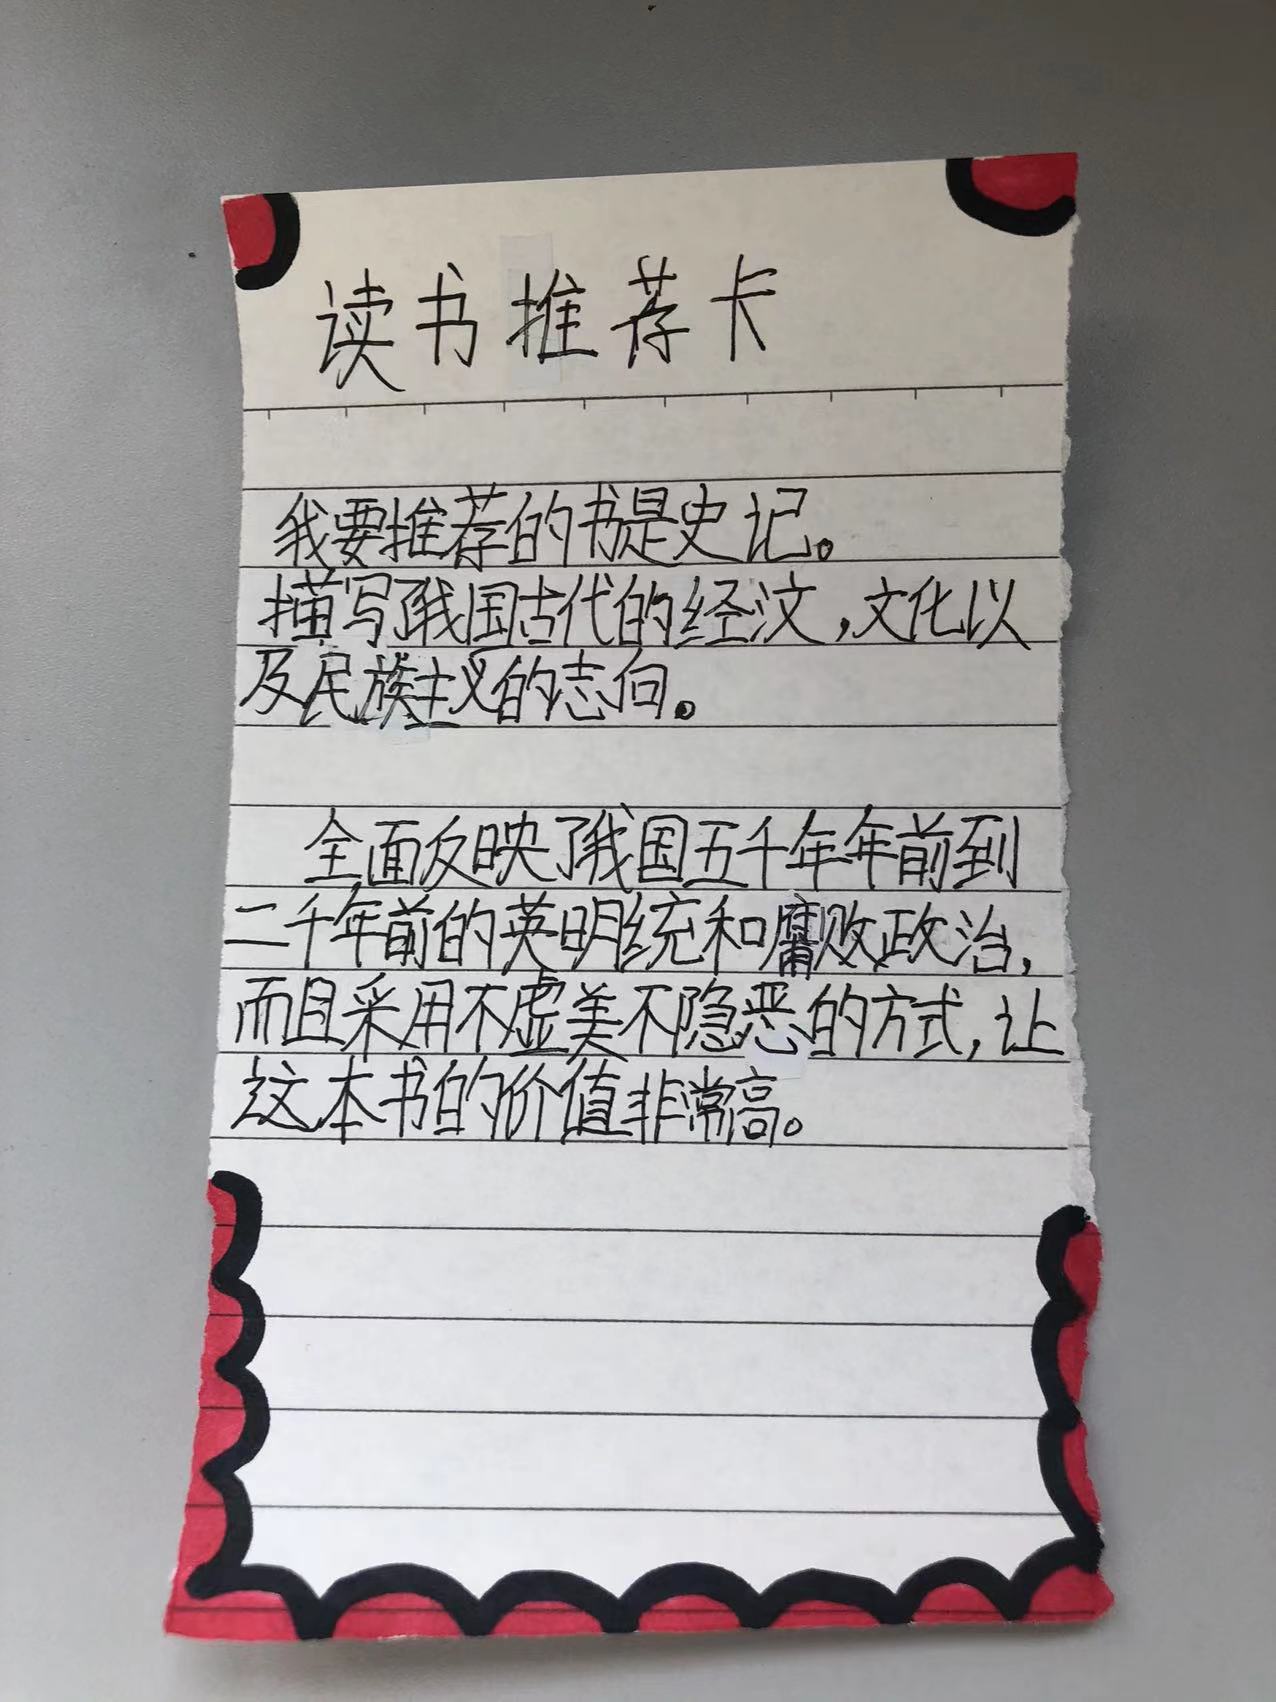 读书推荐卡
我要推荐的书是史记。
描写了我国古代的经汶,文化以
及民族主义的志向。
全面反映了我国五千年年前到
二千年前的英明统和腐败政治,
而且采用不虚美不隐恶的方式,让
这本书的价值非常高。